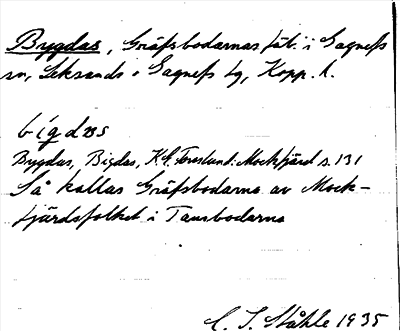 Bygdas, Gräfsbodarnas fäb. i Gagnefs
sn, Leksands o Gagnefs tg, Kopp. l.
bígdas
Bygdas, Bigdas, K.G. Forslund: Mockfjärd s. 131
Så kallas Gräfsbodarna av Mock-
fjärdsfolket i Tansbodarna
C. I. Ståhle 1935